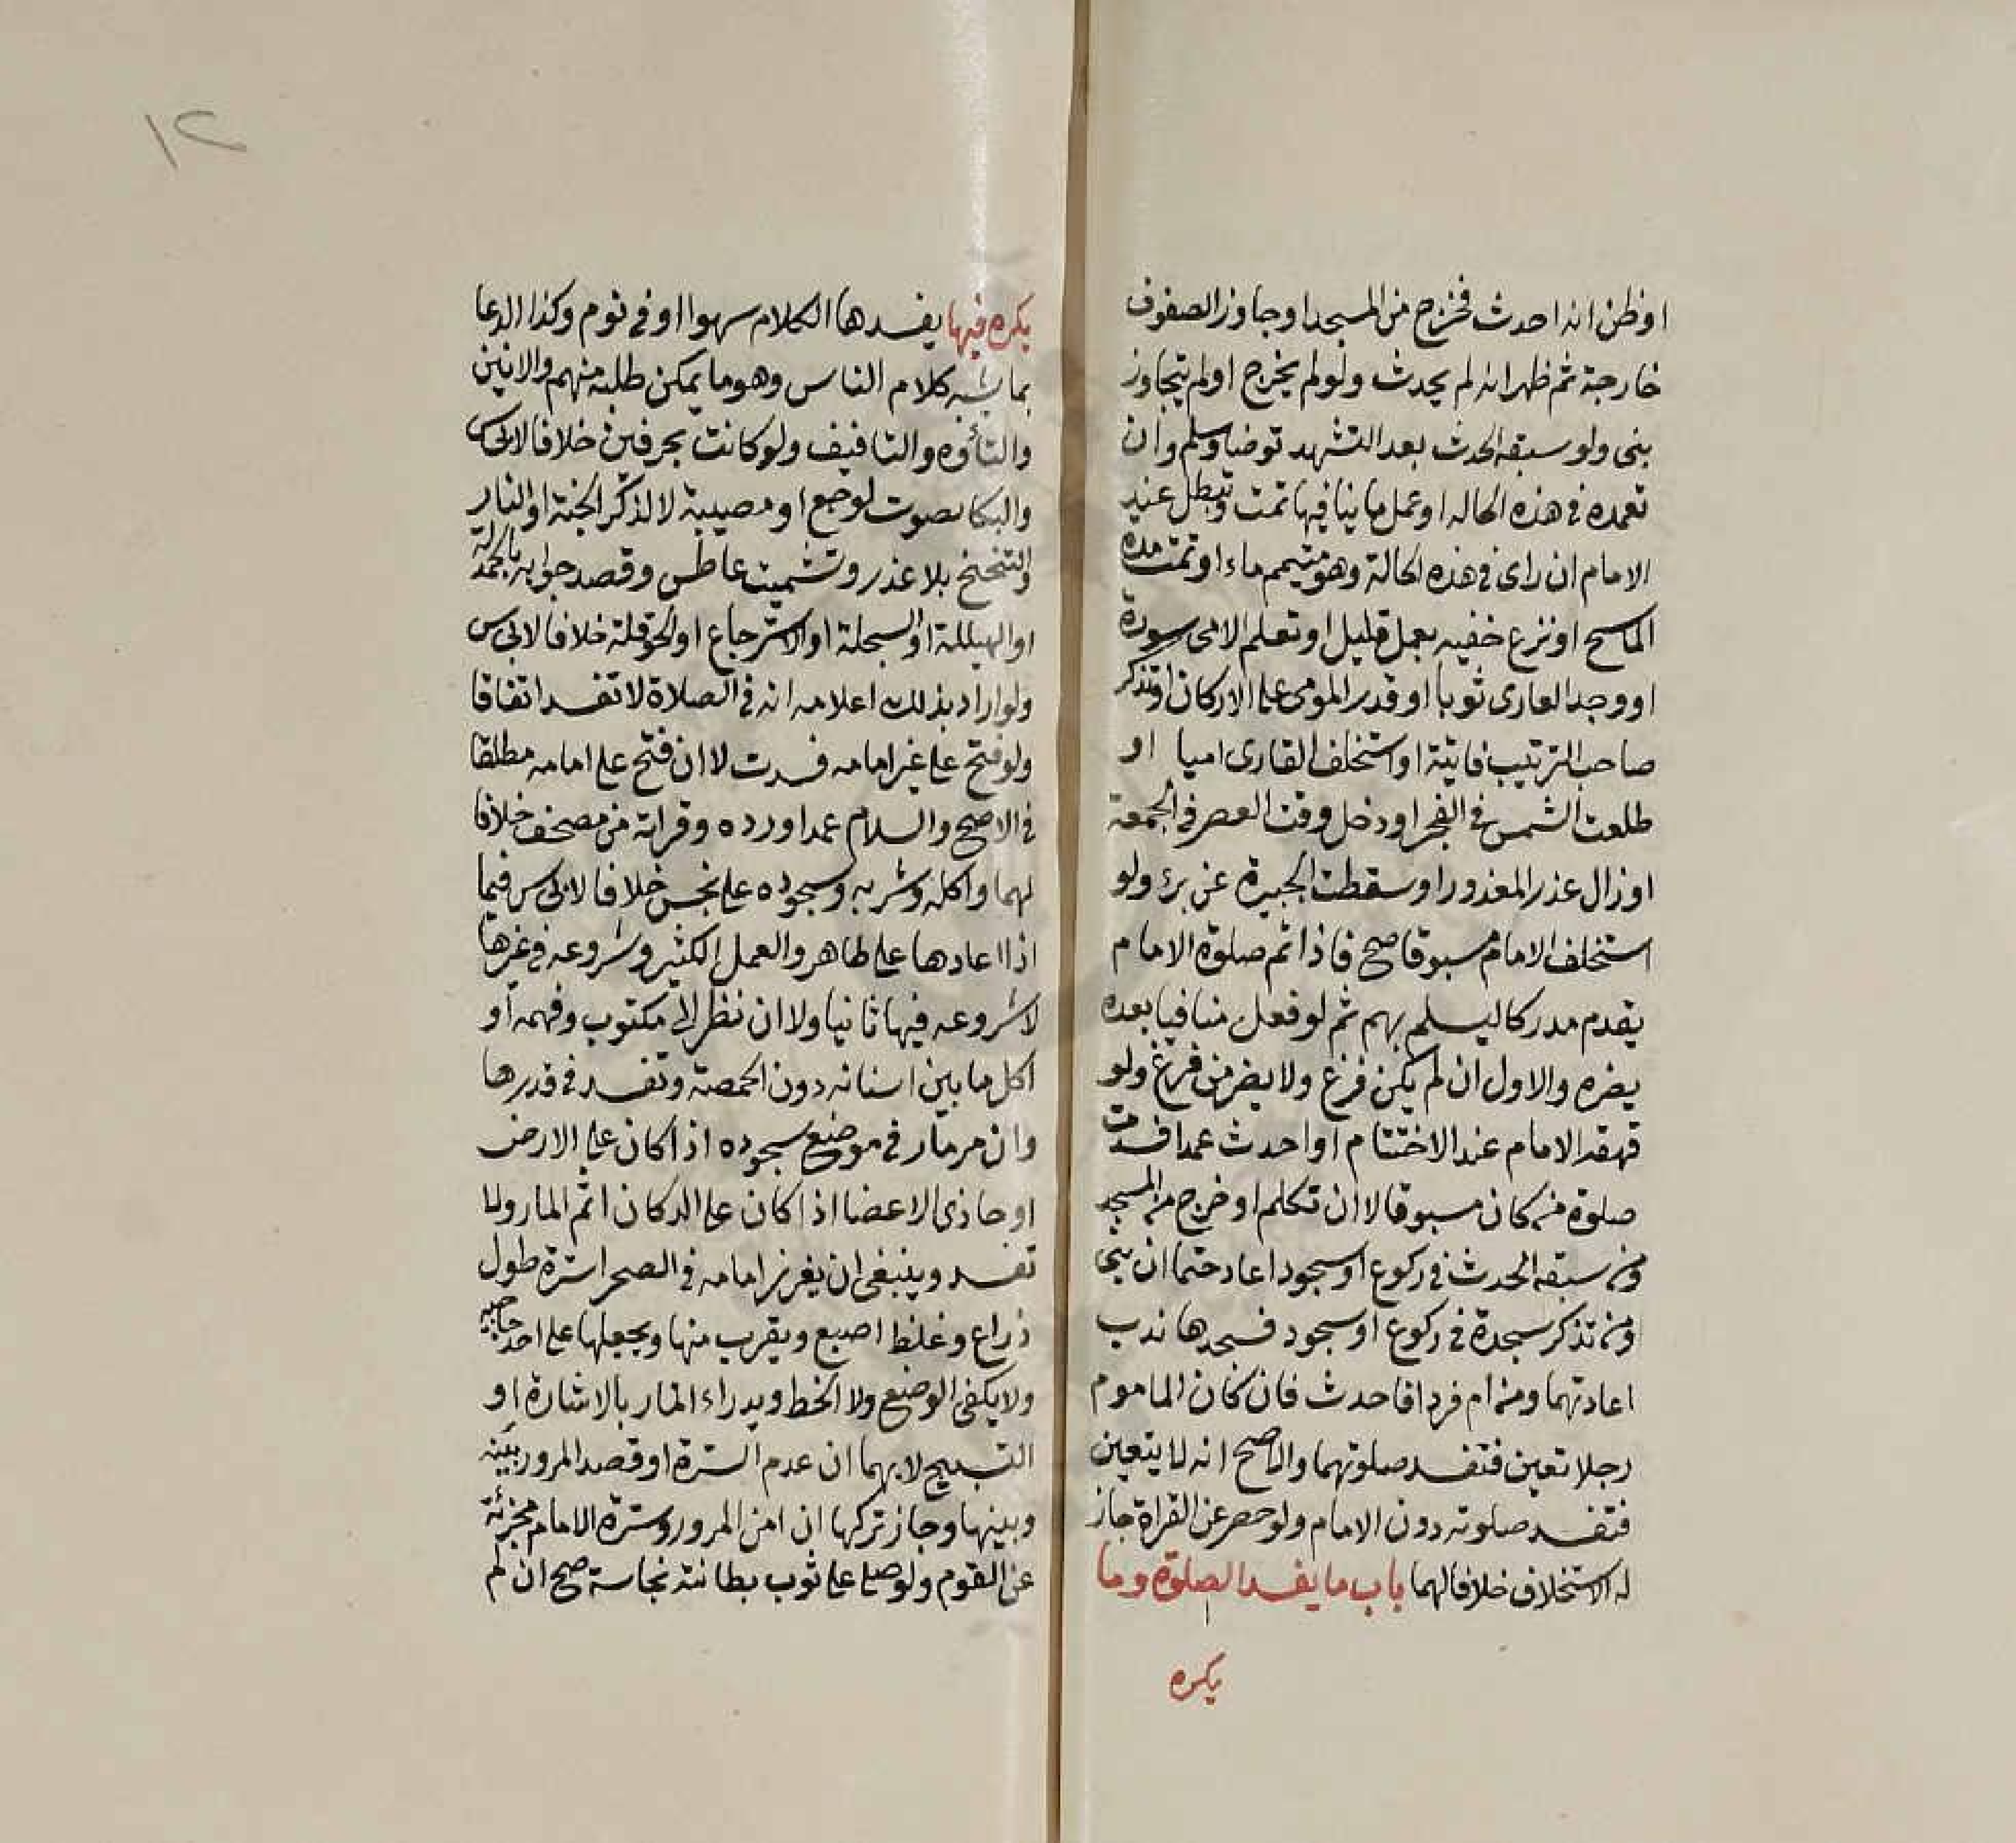 او ظن انه احدث فخرج من المسجد او جاوز الصفوف
خارجة ثم ظهر انه لم يحدث ولو لم يخرج او لم يتجاوز
بنى ولو سبقه الحدث بعد التشهد توضا وسلم وان
تعمده في هذه الحاله او عمل ما ينافيها تمت وتبطل عند
الامام ان راى في هذه الحالة وهو متيمم ماء او تمت مدة
الماسح او نزع خفيه بعمل قليل او تعلم الامى سورة
او وجد العارى ثوبا او قدر المومى على الاركان او تذكر
صاحب الترتيب فايتة او استخلف القارى اميا او
طلعت الشمس في الفجر او دخل وقت العصر في الجمعة
او زال عذر المعذور او سقطت الجبيرة عن برء ولو
استخلف الامام مسبوقا صح فاذا اتم صلوة الامام
يقدم مدركا ليسلم بهم ثم لو فعل منافيا بعده
يضره والاول ان لم يكن فرغ ولا يضر من فرغ ولو
قهقه الامام عند الاختتام او احدث عمدا فسدت
صلوة من كان مسبوقا لا ان تكلم او خرج من المسجد
ومن سبقه الحدث في ركوع او سجود اعاد حتما ان بنى
ومن تذكر سجدة في ركوع او سجود فسجدها ندب
اعادتهما ومن ام فردا فاحدث فان كان الماموم
رجلا تعين فتفسد صلوتهما والاصح انه لا يتعين
فتفسد صلوته دون الامام ولو حصر عن القراة جاز
له الاستخلاف خلافا لهما باب ما يفسد الصلوة وما
يكره
١٢
يكره فيها يفسدها الكلام سهوا او في نوم وكذا الدعا
بما يشبه كلام الناس وهو ما يمكن طلبه منهم والانين
والتأوه والتافيف ولو كانت بحرفين خلافا لابى س
والبكا بصوت لوجع او مصيبة لا لذكر الجنة او النار
والتنحنح بلا عذر وتشميت عاطس وقصد جوابه بالحمدلة
او الهيللة او السبحلة او الاسترجاع او الحوقلة خلافا لابى س
ولو اراد بذلك اعلامه انه في الصلاة لا تفسد اتفاقا
ولو فتح على غير امامه فسدت لا ان فتح على امامه مطلقا
في الاصح والسلام عمدا ورده وقراته من مصحف خلافا
لهما واكله وشربه وسجوده على نجس خلافا لابى س فيما
اذا اعادها على طاهر والعمل الكثير وشروعه في غيرها
لا شروعه فيها ثانيا ولا ان نظر الى مكتوب وفهمه او
اكل ما بين اسنانه دون الحمصة وتفسد في قدرها
وان مر مار في موضع سجوده اذا كان على الارض
او حاذى الاعضا اذا كان على الدكان اثم المار ولا
تفسد وينبغى ان يغرز امامه في الصحرا سترة طول
ذراع وغلظ اصبع ويقرب منها ويجعلها على احد حاجبيه
ولا يكفى الوضع ولا الخط ويدراء المار بالاشارة او
التسبيح لا بهما ان عدم السترة او قصد المرور بينه
وبينها وجاز تركها ان امن المرور وسترة الامام مجزئة
عن القوم ولو صلى على ثوب بطانته نجاسة صح ان لم